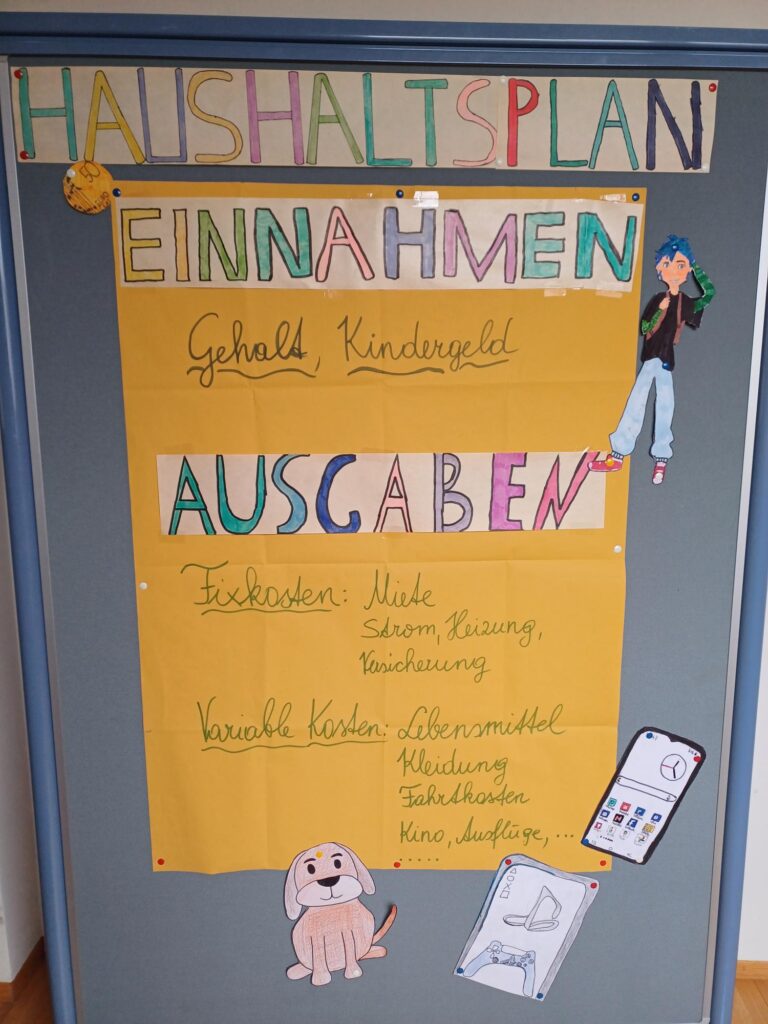 HAUSHALTSPLAN
50
EINNAHMEN
Gehalt, Kindergeld
AUSGABEN
Fixkosten: Miete
Strom, Heizung,
Versicherung
Variable Kosten: Lebensmittel
Kleidung
Fahrtkosten
Kino, Ausflüge, ...
.....